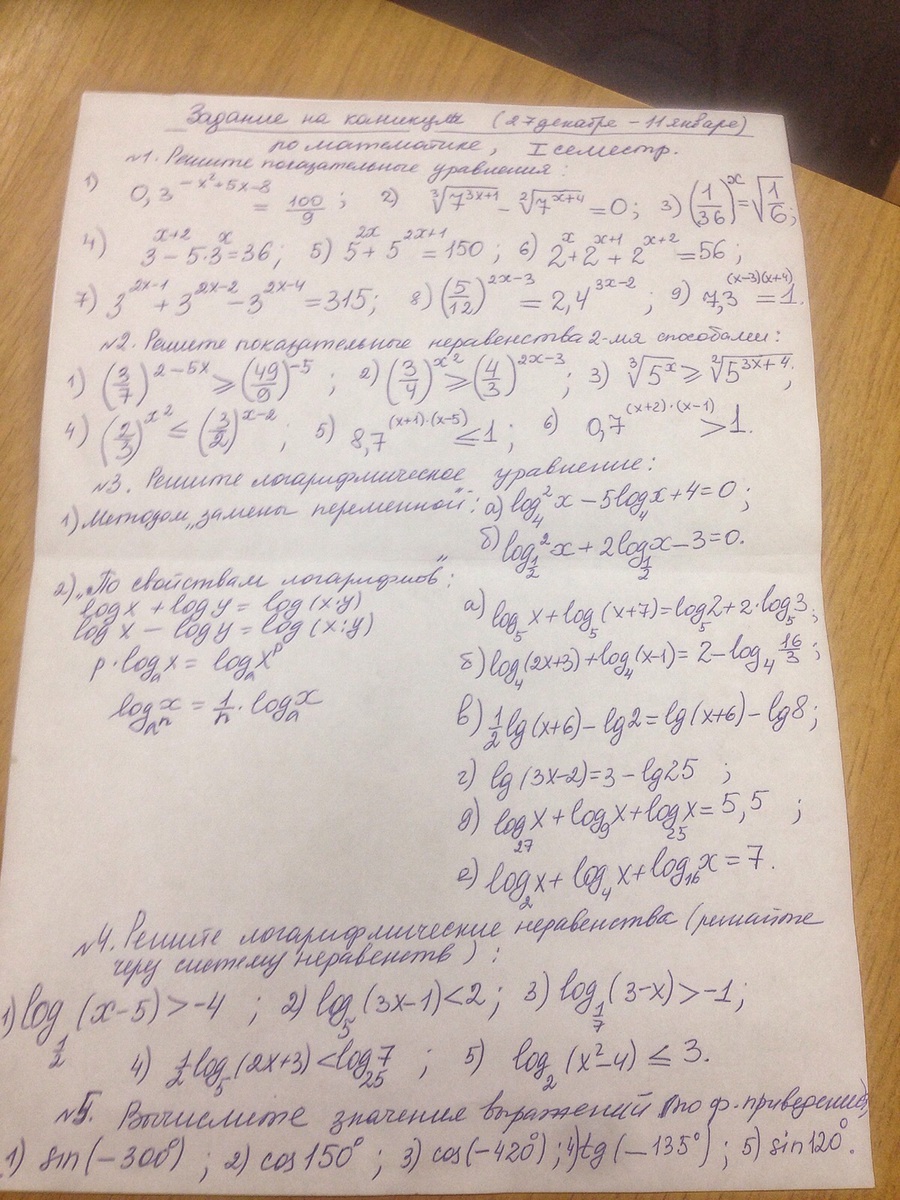 Задание на каникулы (27 декабре - 11 январе)
по математике, I семестр.
№1. Решите показательные уравнения:
1) 0,3^(-x²+5x-8) = 100/9; 2) ∛(7^(3x+1)) - ²√(7^(x+4)) = 0; 3) (1/36)^x = √(1/6);
4) 3^(x+2) - 5·3^x = 36; 5) 5^(2x) + 5^(2x+1) = 150; 6) 2^x + 2^(x+1) + 2^(x+2) = 56;
7) 3^(2x-1) + 3^(2x-2) - 3^(2x-4) = 315; 8) (5/12)^(2x-3) = 2,4^(3x-2); 9) 7,3^((x-3)(x+4)) = 1.
№2. Решите показательные неравенства 2-мя способами:
1) (3/7)^(2-5x) ⩾ (49/9)^(-5); 2) (3/4)^(x²) ⩾ (4/3)^(2x-3); 3) ∛(5^x) ⩾ ²√(5^(3x+4));
4) (2/3)^(x²) ≤ (3/2)^(x-2); 5) 8,7^((x+1)·(x-5)) ≤ 1; 6) 0,7^((x+2)·(x-1)) > 1.
№3. Решите логарифмическое уравнение:
1) Методом „замены переменной": а) log₄² x - 5 log₄ x + 4 = 0;
б) log²_(1/2) x + 2 log_(1/2) x - 3 = 0.
2) „По свойствам логарифмов":
log x + log y = log (x·y)
log x - log y = log (x:y)
p·logₐ x = logₐ x^p
log_(aⁿ) x = 1/n · logₐ x
а) log₅ x + log₅ (x+7) = log₅ 2 + 2·log₅ 3;
б) log₄ (2x+3) + log₄ (x-1) = 2 - log₄ 16/3;
в) 1/2 lg (x+6) - lg 2 = lg (x+6) - lg 8;
г) lg (3x-2) = 3 - lg 25;
д) log₂₇ x + log₉ x + log₂₅ x = 5,5;
е) log₂ x + log₄ x + log₁₆ x = 7.
№4. Решите логарифмические неравенства (решайте
черу систему неравенств):
1) log_(1/2) (x-5) > -4; 2) log₅ (3x-1) < 2; 3) log_(1/7) (3-x) > -1;
4) 1/2 log₅ (2x+3) < log₂₅ 7; 5) log₂ (x²-4) ≤ 3.
№5. Вычислите значения выражений (по ф. приведения)
1) sin (-300°); 2) cos 150°; 3) cos (-420°); 4) tg (-135°); 5) sin 120°.